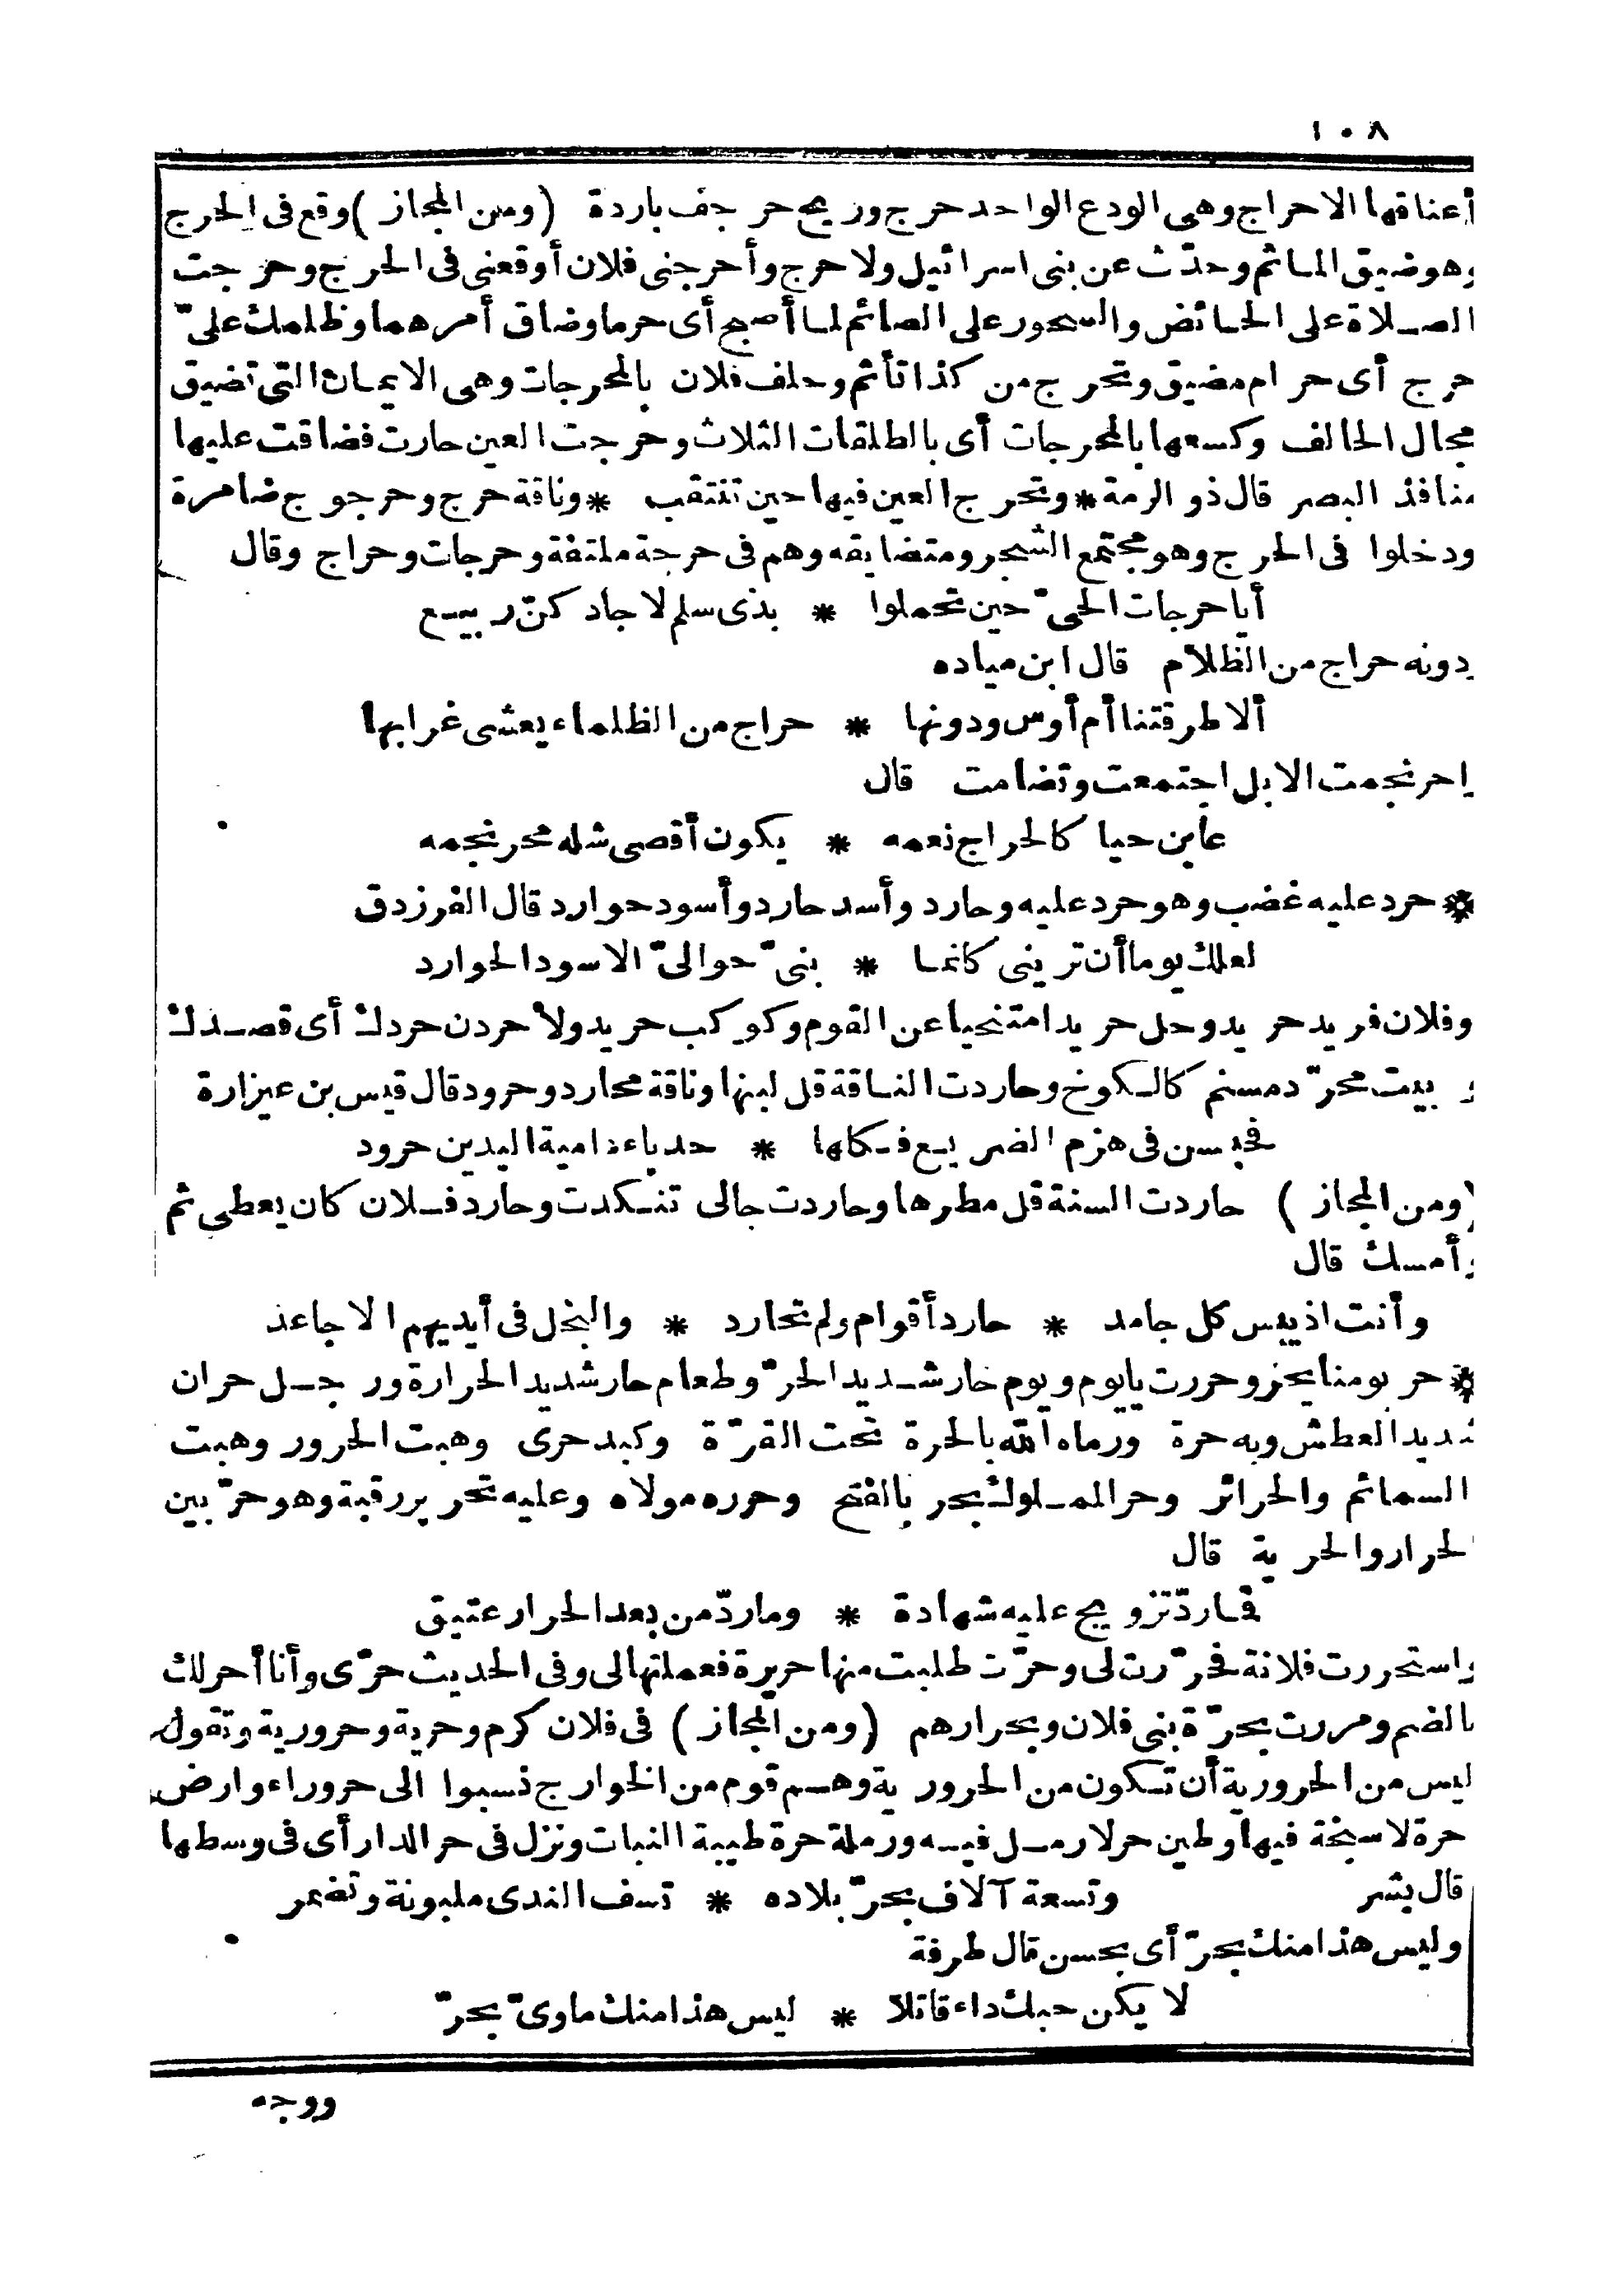 ١٠٨
أعناقها الاحراج وهى الودع الواحد حرج وريح حرجف باردة (ومن المجاز) وقع فى الحرج
وهو ضيق المأثم وحدّث عن بنى اسرائيل ولا حرج وأحرجنى فلان أوقعنى فى الحرج وحرجت
الصلاة على الحائض والسحور على الصائم لما أصبح أى حرما وضاق أمرهما وظلمك علىّ
حرج أى حرام مضيق وتحرج من كذا تأثم وحلف فلان بالمحرجات وهى الايمان التى تضيق
مجال الحالف وكسعها بالمحرجات أى بالطلقات الثلاث وحرجت العين حارت فضاقت عليها
منافذ البصر قال ذو الرمة * وتحرج العين فيها حين تنتقب * وناقة حرج وحرجوج ضامرة
ودخلوا فى الحرج وهو مجتمع الشجر ومتضايقه وهم فى حرجة ملتفة وحرجات وحراج وقال
أيا حرجات الحىّ حين تحملوا * بذى سلم لا جادكنّ ربيع
ودونه حراج من الظلام قال ابن مياده
ألا طرقتنا أم أوس ودونها * حراج من الظلماء يعشى غرابها
واحرنجمت الابل اجتمعت وتضامت قال
عاين حيا كالحراج نعمه * يكون أقصى شله محرنجمه
* حرد عليه غضب وهو حرد عليه وحارد وأسد حارد وأسود حوارد قال الفرزدق
لعلك يوما أن ترينى كانما * بنىّ حوالىّ الاسود الحوارد
وفلان فريد حريد وحل حريدا متنحيا عن القوم وكوكب حريد ولأحردن حردك أى قصدك
و بيت محرّد مسنم كالكوخ وحاردت الناقة قل لبنها وناقة محارد وحرود قال قيس بن عيزارة
فحبسن فى هزم الضريع فكلها * حدباء دامية اليدين حرود
(ومن المجاز) حاردت السنة قل مطرها وحاردت حالى تنكدت وحارد فلان كان يعطى ثم
وأمسك قال
وأنت اذ ييبس كل جامد * حارد أقوام ولم تحارد * والبخل فى أيديهم الاجاعد
* حر يومنا يحر وحررت يا يوم ويوم حار شديد الحرّ وطعام حار شديد الحرارة ورجل حران
شديد العطش وبه حرة ورماه الله بالحرة تحت القرّة وكبد حرى وهبت الحرور وهبت
السمائم والحرائر وحر المملوك يحر بالفتح وحرره مولاه وعليه تحرير رقبة وهو حرّ بين
الحرار والحرية قال
فما ردّ تزويج عليه شهادة * وما ردّ من بعد الحرار عتيق
واستحررت فلانة فحرّرت لى وحرّت طلبت منها حريرة فعملتها لى وفى الحديث حرّى وأنا أحر لك
بالضم ومررت بحرّة بنى فلان وبحرارهم (ومن المجاز) فى فلان كرم وحرية وحرورية وتقول
ليس من الحرورية أن تكون من الحرورية وهم قوم من الخوارج نسبوا الى حروراء وارض
حرة لا سبخة فيها وطين حر لا رمل فيه ورملة حرة طيبة النبات ونزل فى حر الدار أى فى وسطها
قال بشر وتسعة آلاف بحرّ بلاده * تسف الندى ملبونة وتضمر
وليس هذا منك بحرّ أى بحسن قال طرفة
لا يكن حبك داء قاتلا * ليس هذا منك ماوىّ بحرّ
ووجه